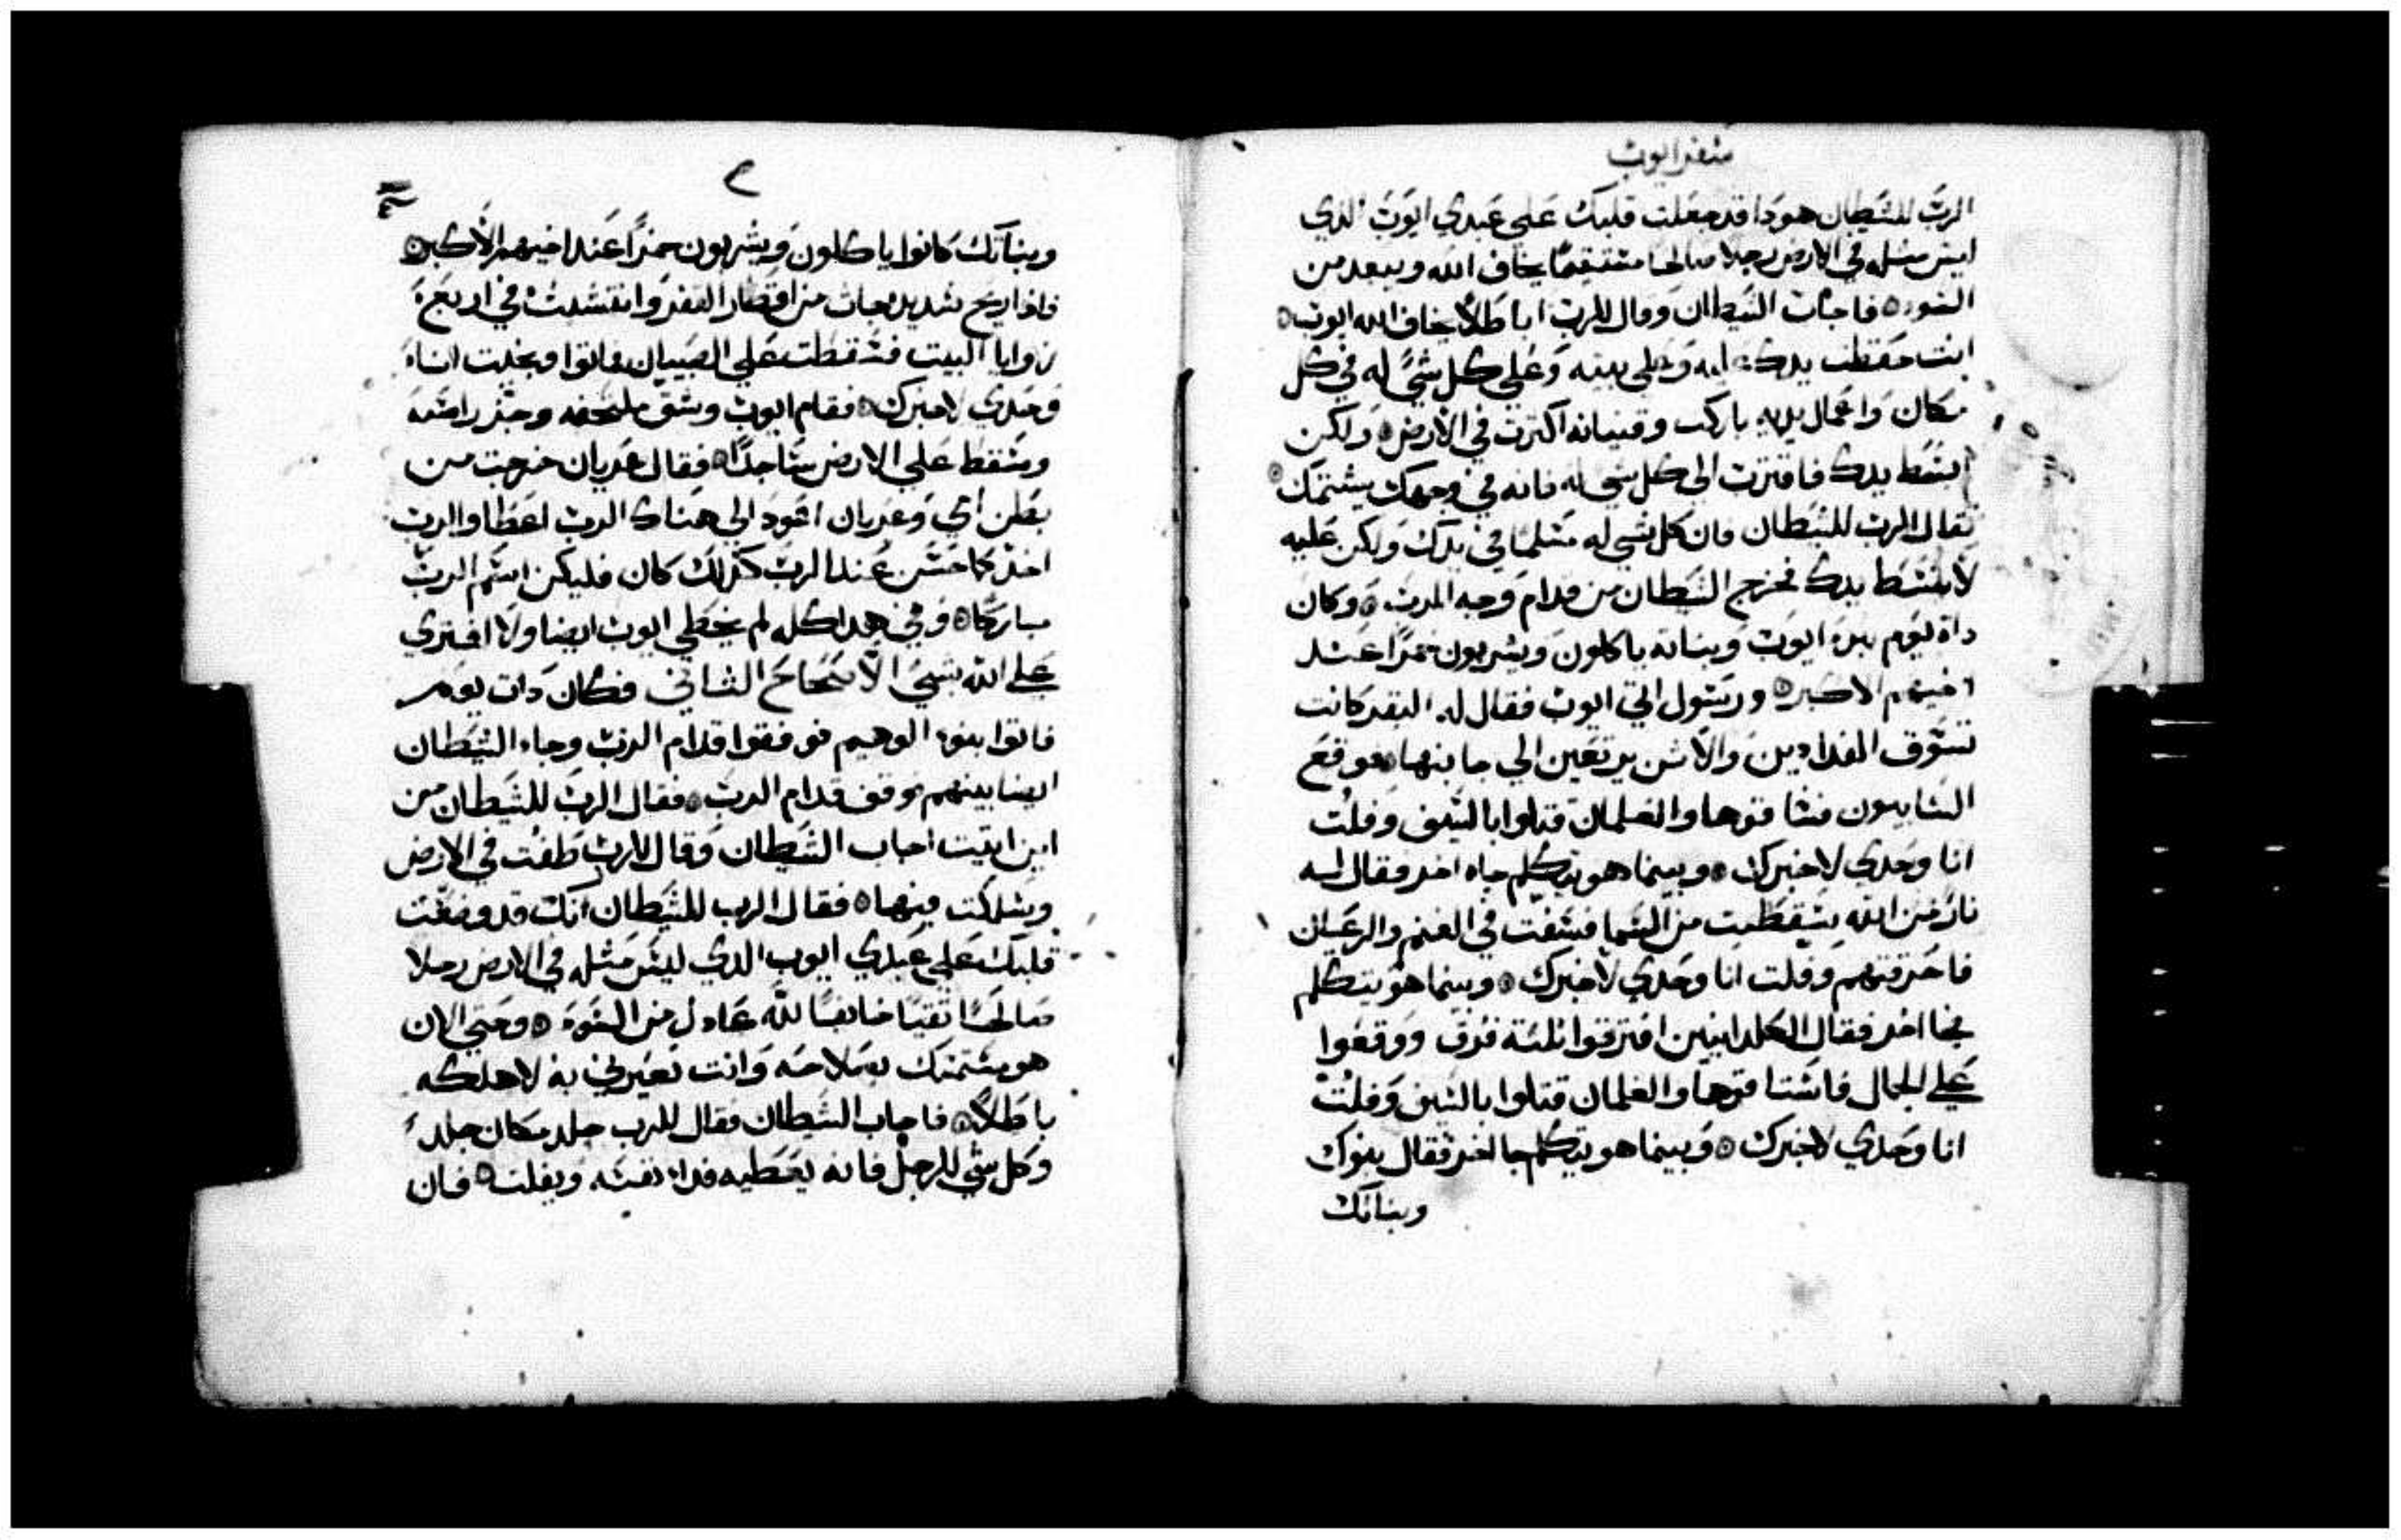 سفر ايوب
الرب للشيطان هودا قد جعلت قلبك على عبدي ايوب الذي
ليس مثله في الارض رجلا صالحا مستقيمًا يخاف الله ويبعد من
السوء فاجاب الشيطان وقال للرب اباطلًا يخاف الله ايوب
انت حفظت يدك عليه وعلى بيته وَعلى كل شيً له في كل
مكان واعمال يديه باركت وقنيانه اكترت في الارض ولكن
ابسط يدك فاقترب الى كل شي له فانه في وجهك يشتمك
فقال الرب للشيطان فان كل شي له مسلمًا في يدك ولكن عليه
لا تبسط يدك فخرج الشيطان من قدام وجه الرب وكان
داة يوم بنوه ايوب وبناته ياكلون ويشربون خمرًا عند
اخيهم الاكبر ورسول اتي ايوب فقال له البقر كانت
تسوق الفدادين والاتن يرتعين الي جانبها فوقع
السابيون فساقوها والغلمان قتلوا بالسيف وفلت
انا وحدي لاخبرك وبينما هو يتكلم جاء اخر فقال له
نار من الله سقطت من السما فسفت في الغنم والرعيان
فاحرقتهم وفلت انا وحدي لاخبرك وبينما هو يتكلم
فجا اخر فقال الكلدانيين افترقوا تلتة فرق ووقعوا
علي الجمال فاستاقوها والغلمان قتلوا بالسيف وفلت
انا وحدي لاخبرك وبينما هو يتكلم جا اخر فقال بنوك
وبناتك
وبناتك كانوا ياكلون ويشربون خمرًا عند اخيهم الاكبر
فاذا ريح شديدة جات من اقطار القفر وانتشبت في اربعة
زوايا البيت فسقطت علي الصبيان فماتوا وفلت انا
وحدي لاخبرك فقام ايوب وشق ملحفه وجز راسه
وسقط علي الارض ساجدًا فقال عريان خرجت من
بطن امي وعريان اعود الي هناك الرب اعطا والرب
اخذ كما حسن عند الرب كذلك كان فليكن اسم الرب
مباركًا وفي هدا كله لم يخطي ايوب ايضا ولا افتري
علي الله بشيء الاصحاح الثاني فكان دات يوم
فاتوا بنوه الوهيم فوقفوا قدام الرب وجاء الشيطان
ايضا بينهم فوقف قدام الرب فقال الرب للشيطان من
اين اتيت اجاب الشيطان وقال للرب طفت في الارض
وسلكت فيها فقال الرب للشيطان انك قد وضعت
قلبك علي عبدي ايوب الدي ليس مثله في الارض رجلا
صالحًا تقيًا خايفًا لله عادل من السوء وحتي الان
هو متمسك بصلاحه وانت تعيرني به لاهلكه
باطلًا فاجاب الشيطان فقال للرب جلد مكان جلد
وكل شي للرجل فانه يعطيه فداء نفسه ويفلت فان